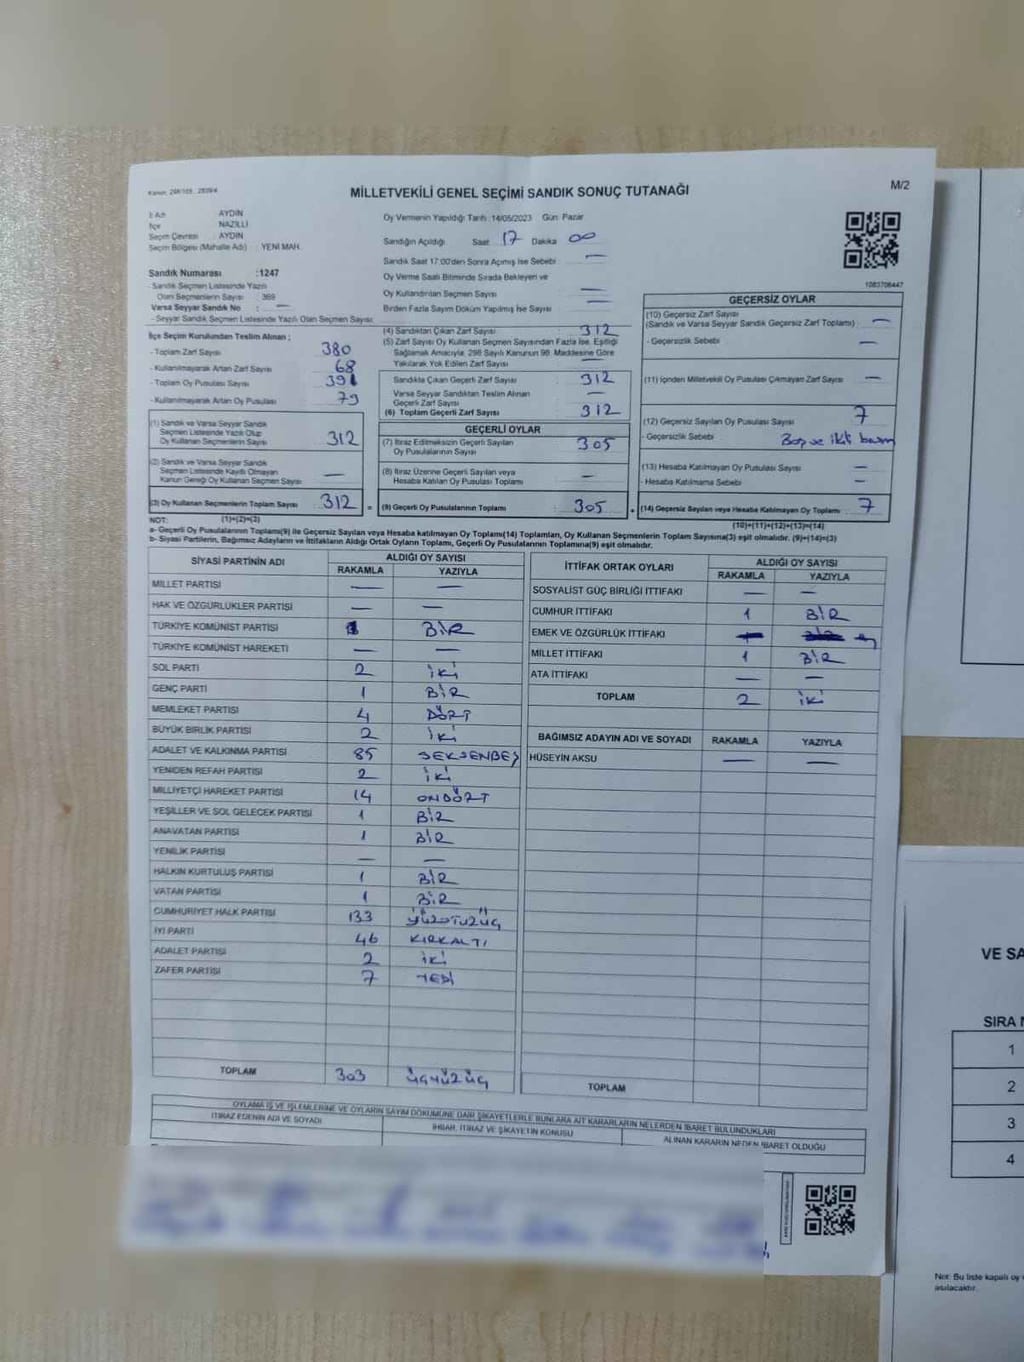 MİLLETVEKİLİ GENEL SEÇİMİ SANDIK SONUÇ TUTANAĞI
M/2
İl Adı AYDIN
İlçe NAZİLLİ
Seçim Çevresi AYDIN
Seçim Bölgesi (Mahalle Adı) : YENİ MAH.
Sandık Numarası :1247
- Sandık Seçmen Listesinde Yazılı
Olan Seçmenlerin Sayısı : 369
Varsa Seyyar Sandık No : —
- Seyyar Sandık Seçmen Listesinde Yazılı Olan Seçmen Sayısı
Oy Vermenin Yapıldığı Tarih :14/05/2023 Gün: Pazar
Sandığın Açıldığı Saat 17 Dakika 00
Sandık Saat 17:00'den Sonra Açılmış İse Sebebi —
Oy Verme Saati Bitiminde Sırada Bekleyen ve
Oy Kullandırılan Seçmen Sayısı —
Birden Fazla Sayım Döküm Yapılmış İse Sayısı —
1083706447
İlçe Seçim Kurulundan Teslim Alınan ;
- Toplam Zarf Sayısı 380
- Kullanılmayarak Artan Zarf Sayısı 68
- Toplam Oy Pusulası Sayısı 391
- Kullanılmayarak Artan Oy Pusulası 79
(1) Sandık ve Varsa Seyyar Sandık
Seçmen Listesinde Yazılı Olup
Oy Kullanan Seçmenlerin Sayısı 312
(2) Sandık ve Varsa Seyyar Sandık
Seçmen Listesinde Kayıtlı Olmayan
Kanun Gereği Oy Kullanan Seçmen Sayısı —
(3) Oy Kullanan Seçmenlerin Toplam Sayısı 312
(1)+(2)=(3)
(4) Sandıktan Çıkan Zarf Sayısı 312
(5) Zarf Sayısı Oy Kullanan Seçmen Sayısından Fazla İse, Eşitliği
Sağlamak Amacıyla, 298 Sayılı Kanunun 98. Maddesine Göre
Yakılarak Yok Edilen Zarf Sayısı —
Sandıkta Çıkan Geçerli Zarf Sayısı 312
Varsa Seyyar Sandıktan Teslim Alınan
Geçerli Zarf Sayısı —
(6) Toplam Geçerli Zarf Sayısı 312
GEÇERLİ OYLAR
(7) İtiraz Edilmeksizin Geçerli Sayılan
Oy Pusulalarının Sayısı 305
(8) İtiraz Üzerine Geçerli Sayılan veya
Hesaba Katılan Oy Pusulası Toplamı —
(9) Geçerli Oy Pusulalarının Toplamı 305
GEÇERSİZ OYLAR
(10) Geçersiz Zarf Sayısı
(Sandık ve Varsa Seyyar Sandık Geçersiz Zarf Toplamı) —
- Geçersizlik Sebebi —
(11) İçinden Milletvekili Oy Pusulası Çıkmayan Zarf Sayısı —
(12) Geçersiz Sayılan Oy Pusulası Sayısı 7
- Geçersizlik Sebebi
(13) Hesaba Katılmayan Oy Pusulası Sayısı —
- Hesaba Katılmama Sebebi —
(14) Geçersiz Sayılan veya Hesaba Katılmayan Oy Toplamı 7
(10)+(11)+(12)+(13)=(14)
NOT:
a- Geçerli Oy Pusulalarının Toplamı(9) ile Geçersiz Sayılan veya Hesaba katılmayan Oy Toplamı(14) Toplamları, Oy Kullanan Seçmenlerin Toplam Sayısına(3) eşit olmalıdır. (9)+(14)=(3)
b- Siyasi Partilerin, Bağımsız Adayların ve İttifakların Aldığı Ortak Oyların Toplamı, Geçerli Oy Pusulalarının Toplamına(9) eşit olmalıdır.
SİYASİ PARTİNİN ADI ALDIĞI OY SAYISI
RAKAMLA YAZIYLA
MİLLET PARTİSİ — —
HAK VE ÖZGÜRLÜKLER PARTİSİ — —
TÜRKİYE KOMÜNİST PARTİSİ 1 BİR
TÜRKİYE KOMÜNİST HAREKETİ — —
SOL PARTİ 2 İKİ
GENÇ PARTİ 1 BİR
MEMLEKET PARTİSİ 4 DÖRT
BÜYÜK BİRLİK PARTİSİ 2 İKİ
ADALET VE KALKINMA PARTİSİ 85 SEKSENBEŞ
YENİDEN REFAH PARTİSİ 2 İKİ
MİLLİYETÇİ HAREKET PARTİSİ 14 ONDÖRT
YEŞİLLER VE SOL GELECEK PARTİSİ 1 BİR
ANAVATAN PARTİSİ 1 BİR
YENİLİK PARTİSİ — —
HALKIN KURTULUŞ PARTİSİ 1 BİR
VATAN PARTİSİ 1 BİR
CUMHURİYET HALK PARTİSİ 133 YÜZOTUZÜÇ
İYİ PARTİ 46 KIRKALTI
ADALET PARTİSİ 2 İKİ
ZAFER PARTİSİ 7 YEDİ
TOPLAM 303 ÜÇYÜZÜÇ
İTTİFAK ORTAK OYLARI ALDIĞI OY SAYISI
RAKAMLA YAZIYLA
SOSYALİST GÜÇ BİRLİĞİ İTTİFAKI — —
CUMHUR İTTİFAKI 1 BİR
EMEK VE ÖZGÜRLÜK İTTİFAKI
MİLLET İTTİFAKI 1 BİR
ATA İTTİFAKI — —
TOPLAM 2 İKİ
BAĞIMSIZ ADAYIN ADI VE SOYADI RAKAMLA YAZIYLA
HÜSEYİN AKSU — —
TOPLAM
OYLAMA İŞ VE İŞLEMLERİNE VE OYLARIN SAYIM DÖKÜMÜNE DAİR ŞİKAYETLERLE BUNLARA AİT KARARLARIN NELERDEN İBARET BULUNDUKLARI
İTİRAZ EDENİN ADI VE SOYADI İHBAR, İTİRAZ VE ŞİKAYETİN KONUSU ALINAN KARARIN NEDEN İBARET OLDUĞU
VE SA
SIRA N
1
2
3
4
Not: Bu liste kapalı oy
asılacaktır.